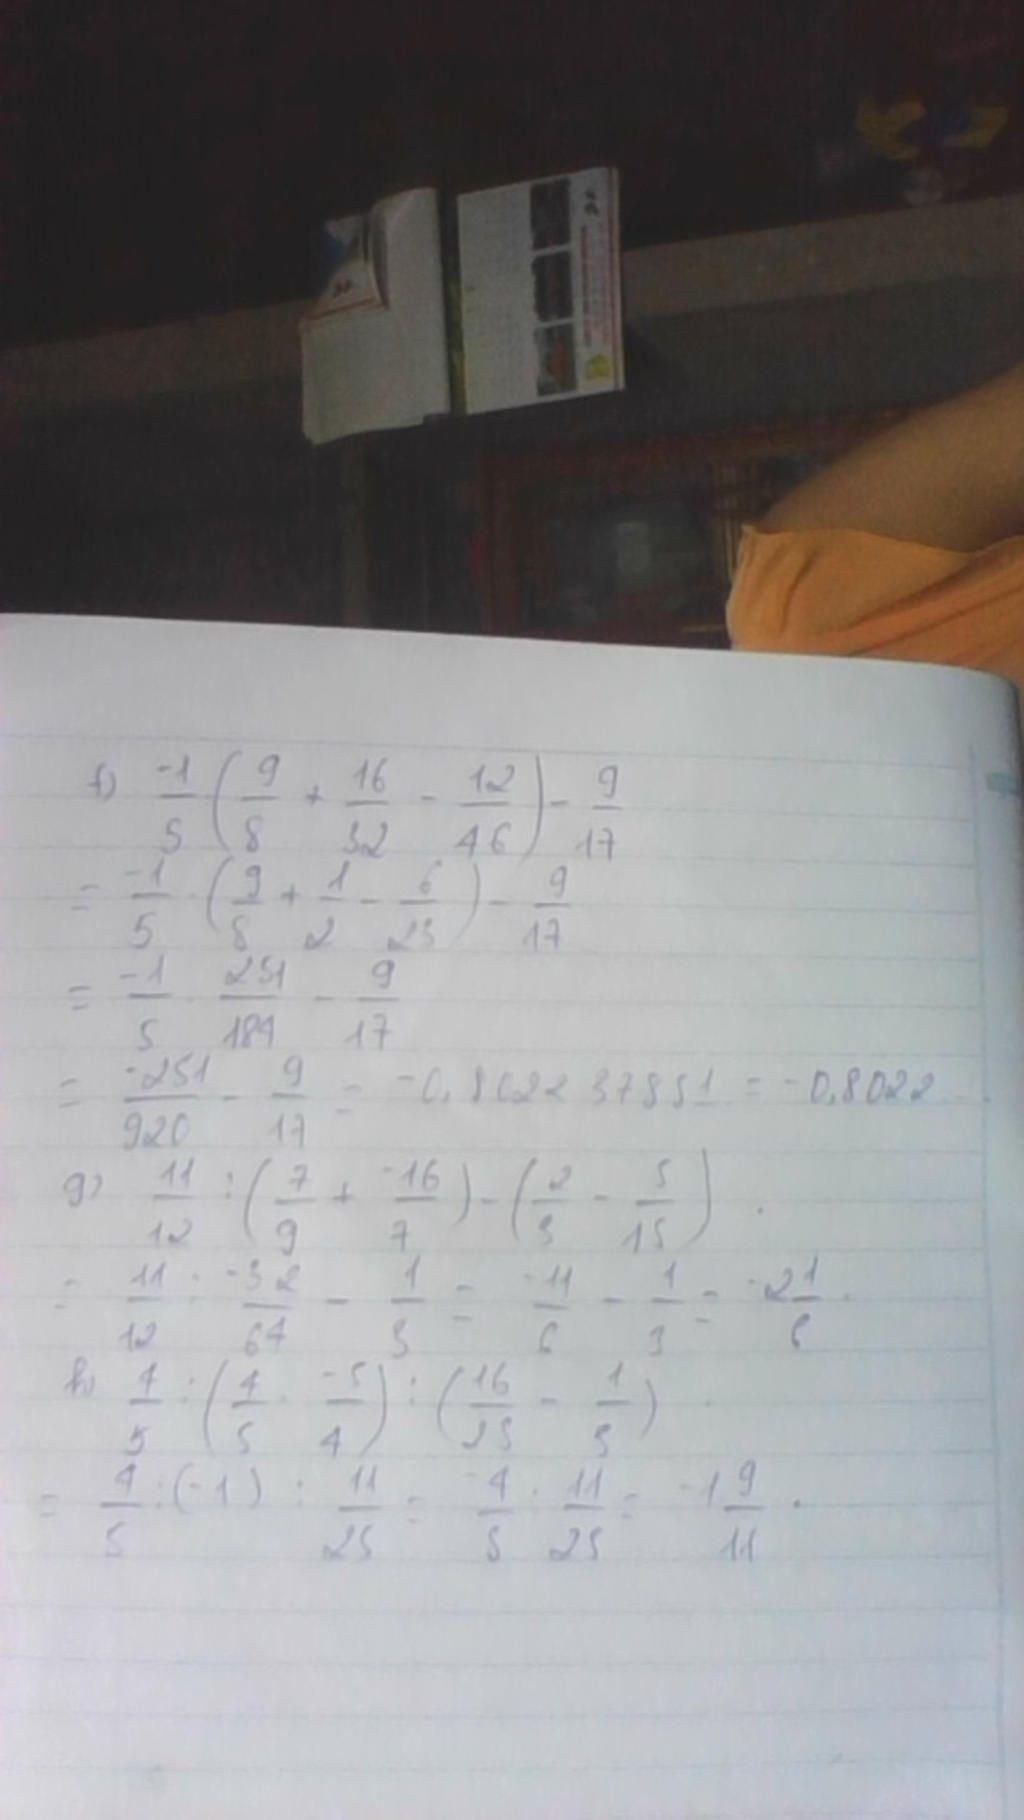 f) -1/5 (9/8 + 16/32 - 12/46) - 9/17
= -1/5 . (9/8 + 1/2 - 6/23) - 9/17
= -1/5 . 251/184 - 9/17
= -251/920 - 9/17 = -0,802237851 = -0,8022
g) 11/12 : (7/9 + -16/7) - (2/3 - 5/15) .
= 11/12 : -32/64 - 1/3 = -11/6 - 1/3 = -2 1/6 .
h) 4/5 : (4/5 . -5/4) : (16/25 - 1/5) .
= 4/5 : (-1) : 11/25 = -4/5 : 11/25 = -1 9/11 .